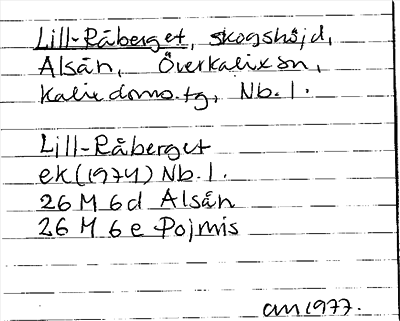 Lill-Råberget, skogshöjd,
Alsån, Överkalix sn,
Kalix doms.tg, Nb.l.
Lill-Råberget
ek(1974) Nb.l.
26 M 6d Alsån
26 M 6e Pojmis
am 1977.